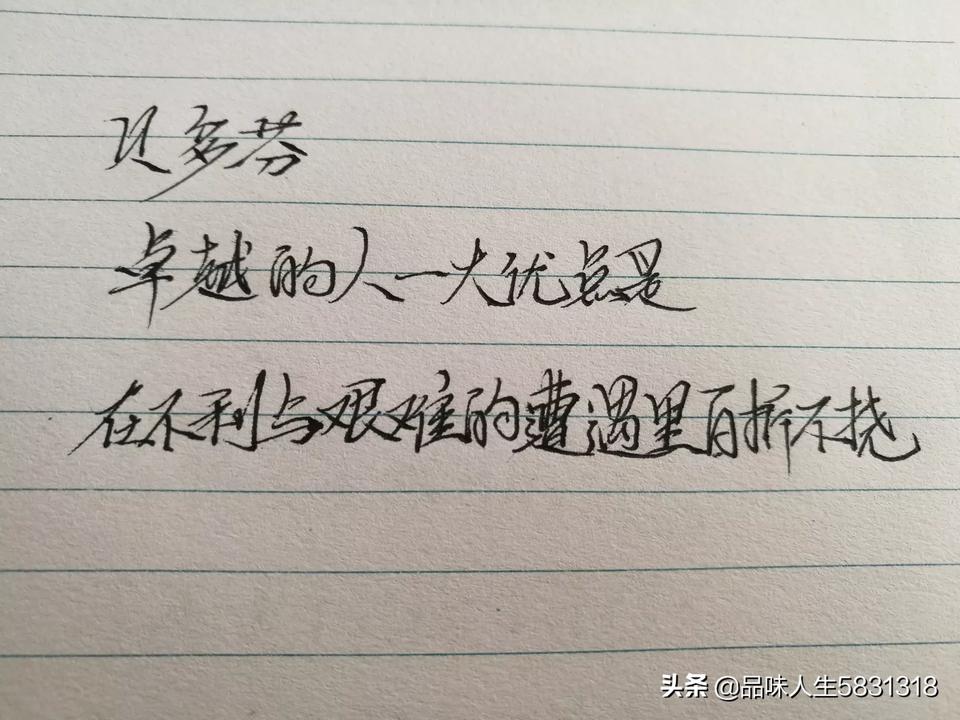 贝多芬
卓越的人一大优点是
在不利与艰难的遭遇里百折不挠
头条 @品味人生5831318